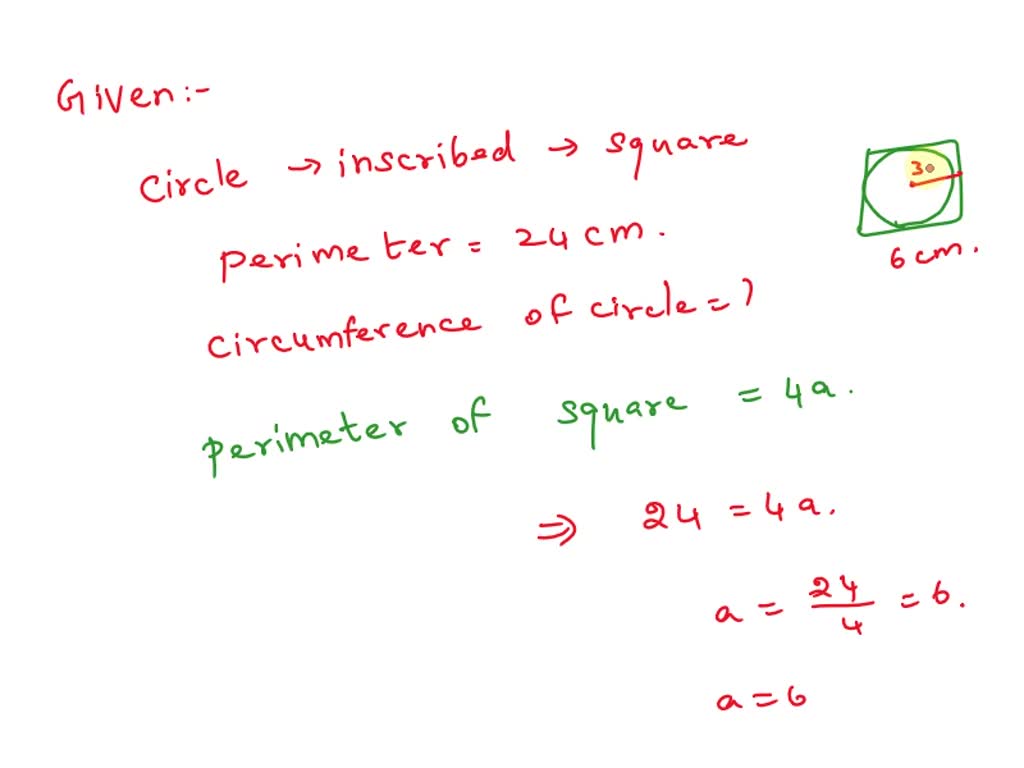 Given:-
Circle → inscribed → square
3
6 cm.
perimeter = 24 cm.
circumference of circle = ?
perimeter of square = 4a.
⇒ 24 = 4a.
a = 24/4 = 6.
a = 6